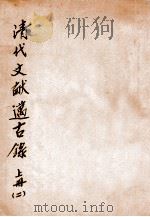 清代文献邁古錄
上册(二)